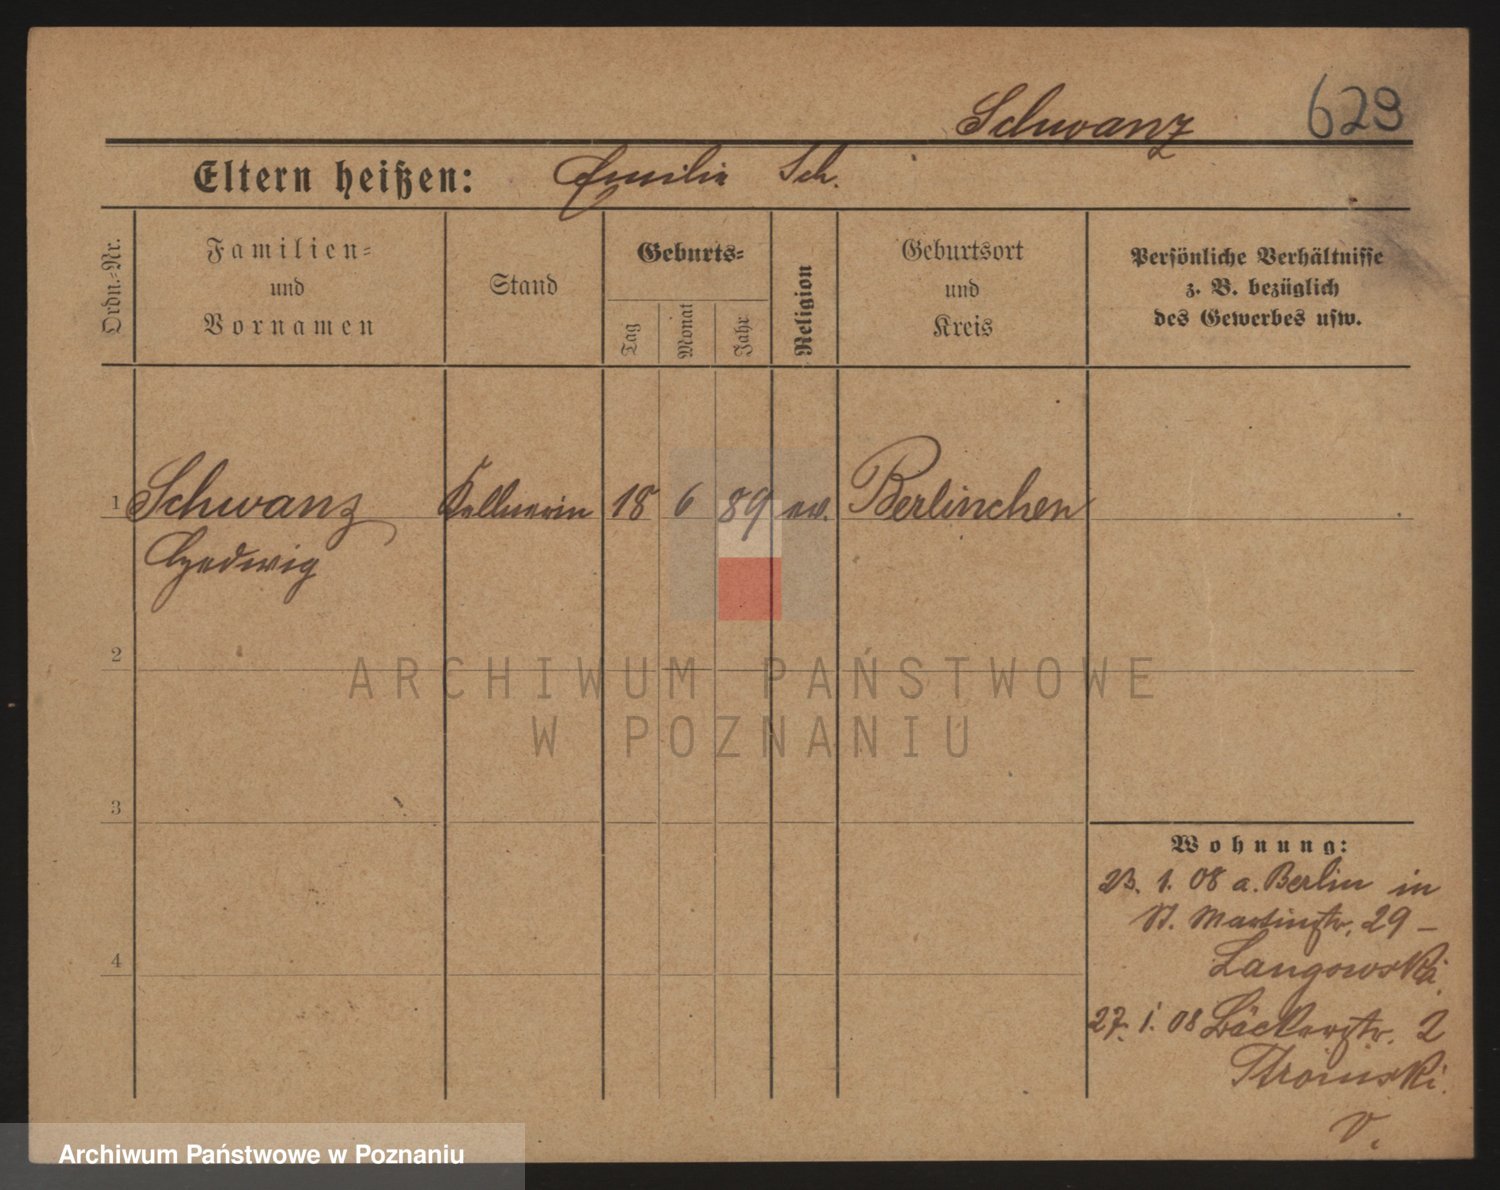 Schwanz 623
Eltern heißen: Emilie Sch.
Ordn.-Nr.
Familien-
und
Vornamen
Stand
Geburts-
Tag
Monat
Jahr
Religion
Geburtsort
und
Kreis
Persönliche Verhältnisse
z. B. bezüglich
des Gewerbes usw.
1 Schwanz Kellnerin 18 6 89 ev. Berlinchen
Hedwig
2
ARCHIWUM PAŃSTWOWE
W POZNANIU
3
Wohnung:
23. 1. 08 a. Berlin in
St. Martinstr. 29 -
Langowski.
4
27. 1. 08 Bäckerstr. 2
v.
Archiwum Państwowe w Poznaniu